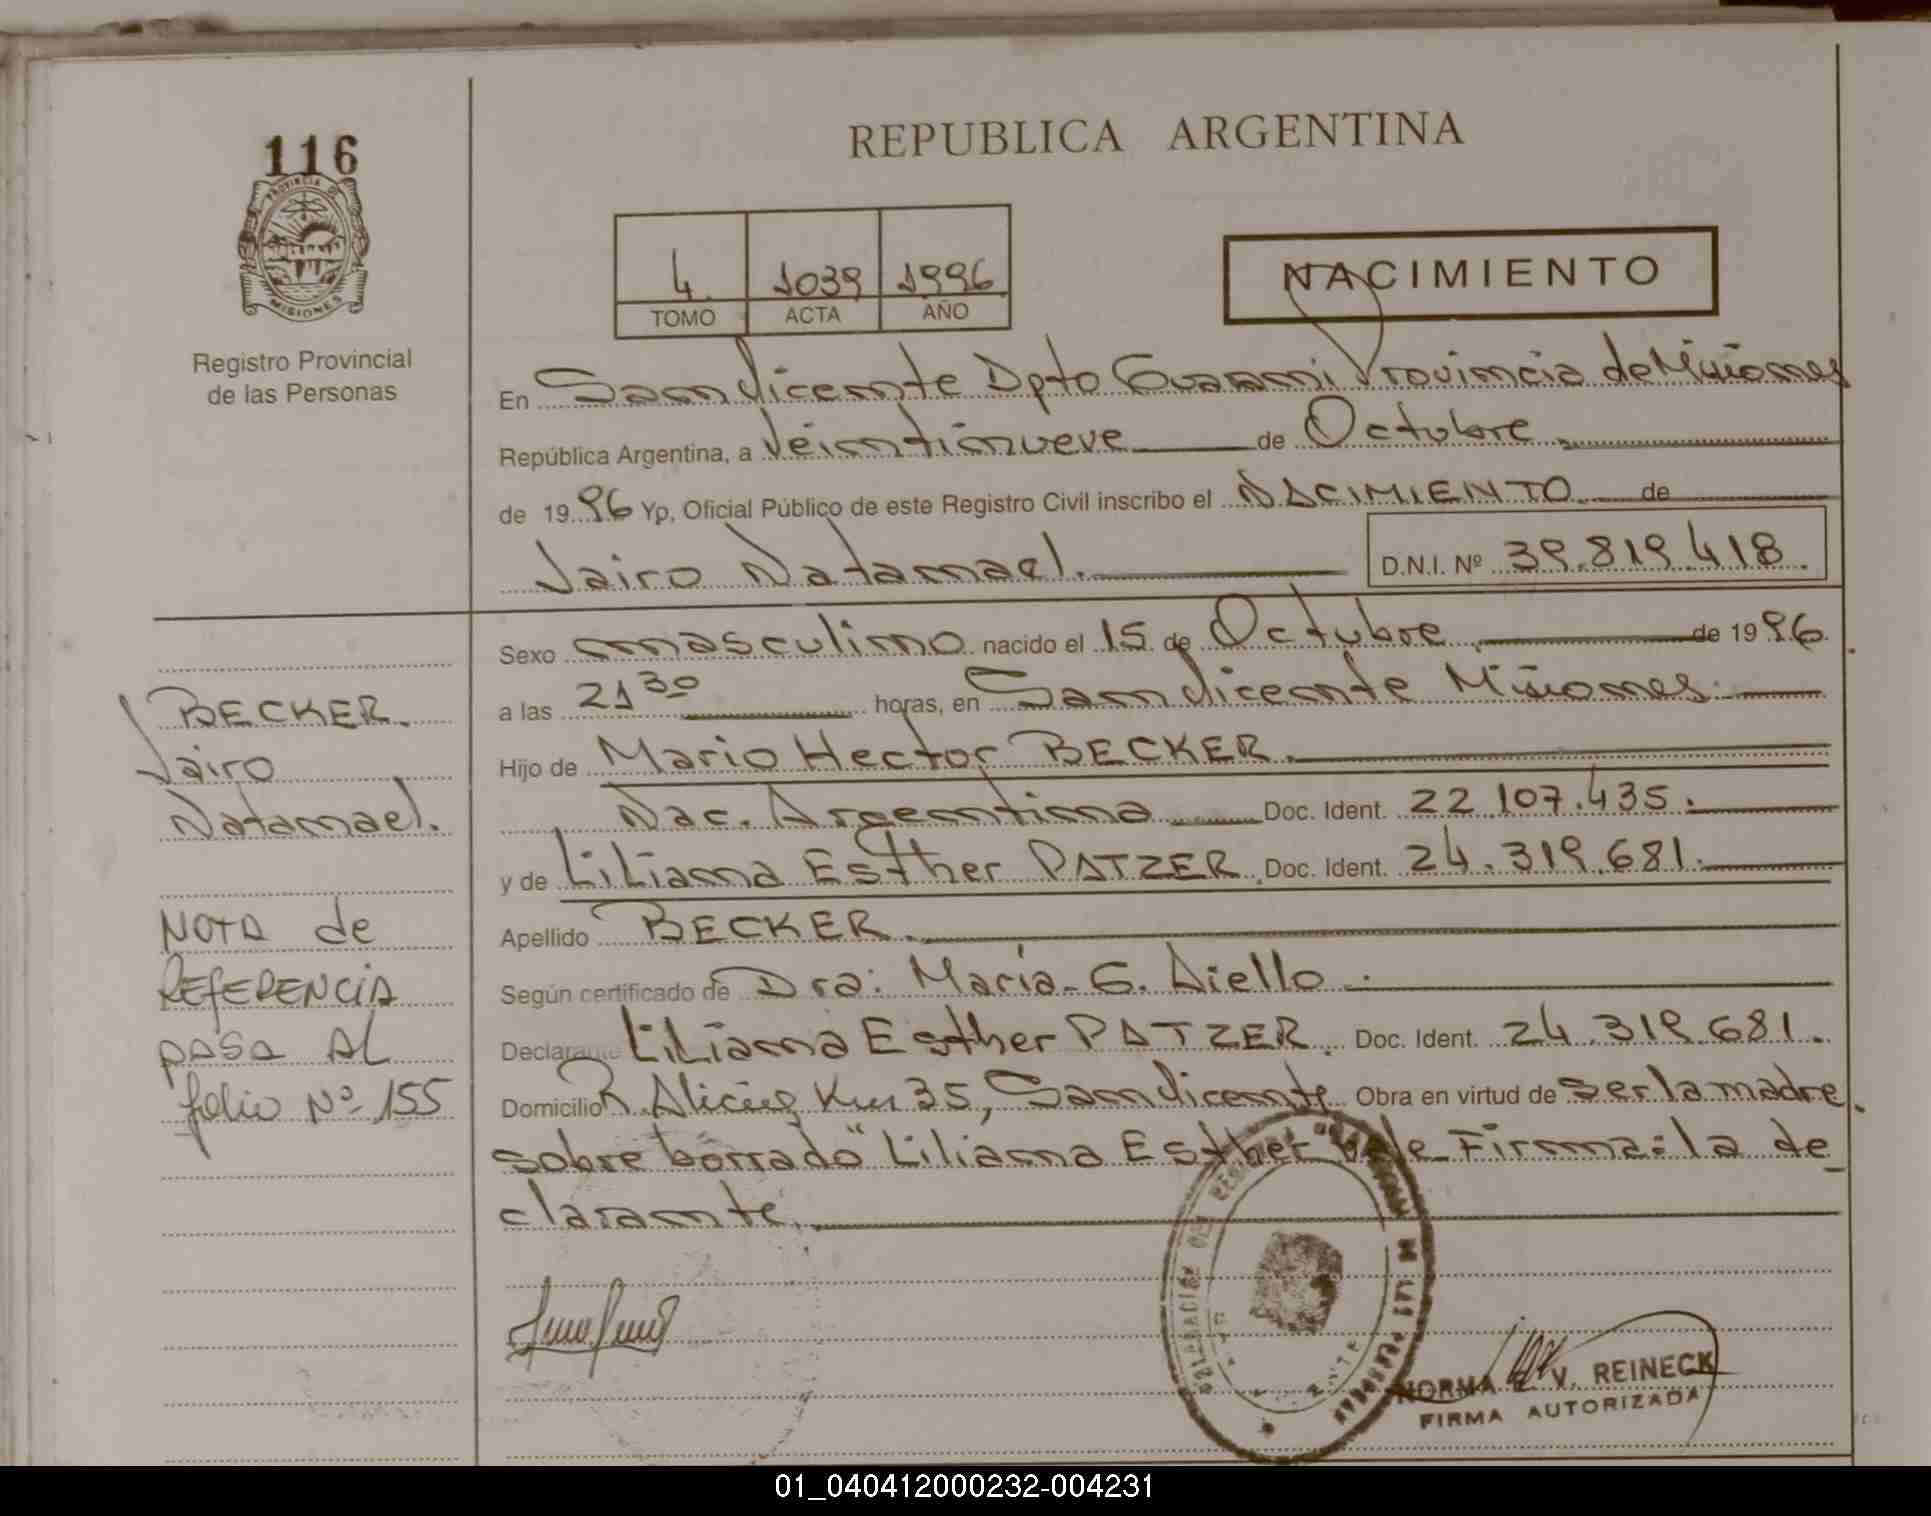 116
PROVINCIA DE
MISIONES
Registro Provincial
de las Personas
REPUBLICA ARGENTINA
4 1039 1996
TOMO ACTA AÑO
NACIMIENTO
En San Vicente Dpto Guarani Provincia de Misiones
República Argentina, a Veintinueve de Octubre
de 1996 Yo, Oficial Público de este Registro Civil inscribo el NACIMIENTO de
Jairo Natanael. D.N.I. Nº 39.819.418.
Sexo masculino nacido el 15 de Octubre de 1996.
a las 21 30 horas, en San Vicente Misiones.
Hijo de Mario Hector BECKER.
Nac. Argentina Doc. Ident. 22.107.435.
y de Liliana Esther PATZER. Doc. Ident. 24.319.681.
Apellido BECKER.
Según certificado de Dra: María G. Aiello.
Declarante Liliana Esther PATZER. Doc. Ident. 24.319.681.
Domicilio P. Alicia Km 35, San Vicente Obra en virtud de ser la madre.
sobre borrado "Liliana Esther" Vale. Firma: la de
clarante.
BECKER.
Jairo
Natanael.
NOTA de
REFERENCIA
PASA AL
folio Nº 155
NORMA V. REINECK
FIRMA AUTORIZADA
01_040412000232-004231